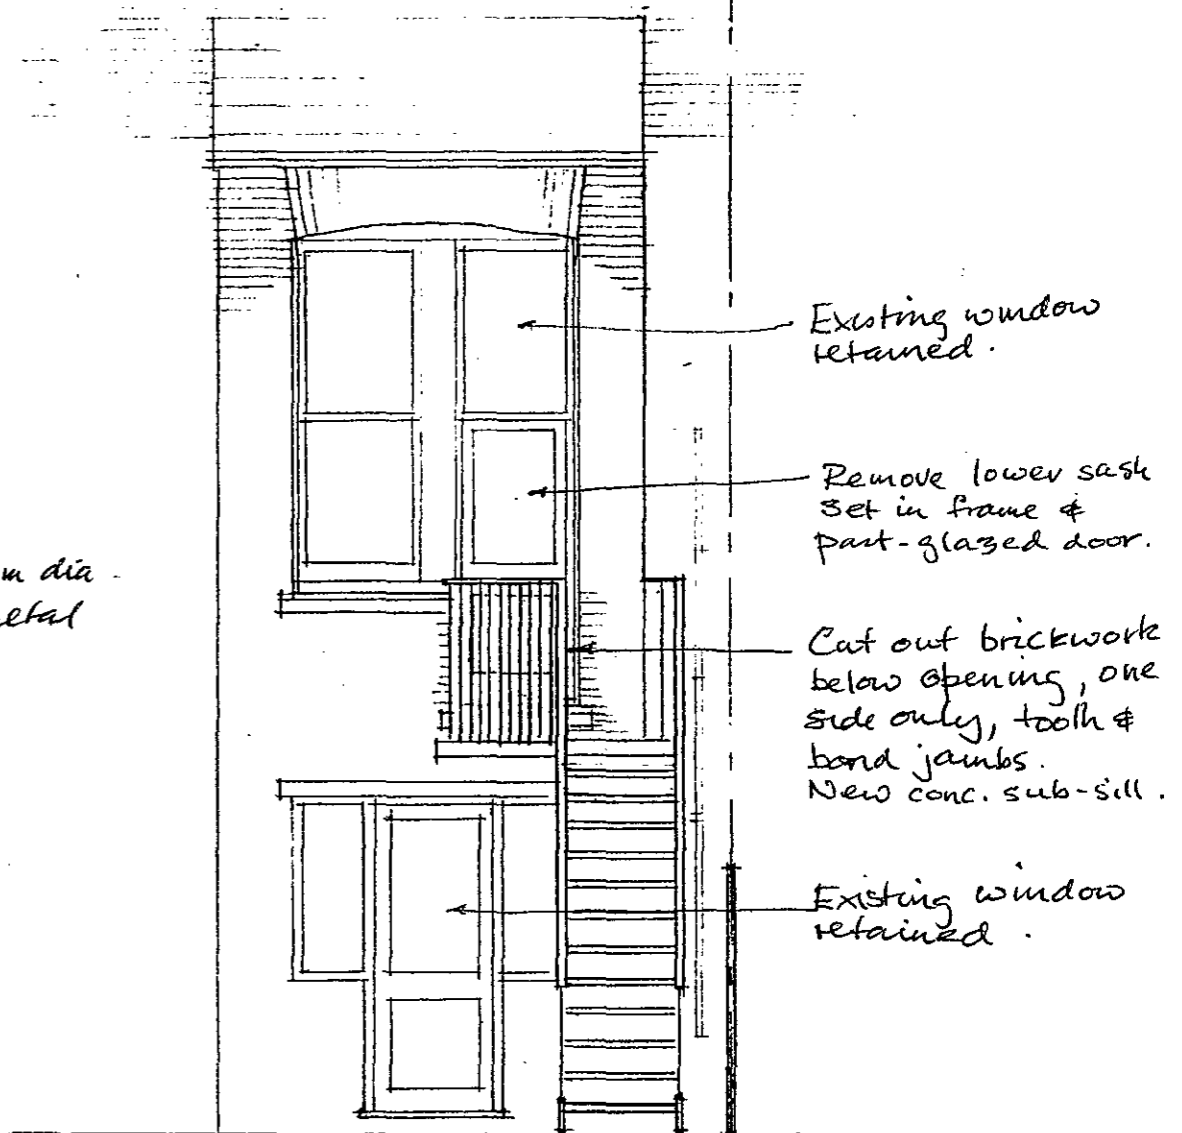 Existing window
retained.
Remove lower sash
set in frame &
part-glazed door.
m dia.
etal
Cut out brickwork
below opening, one
side only, tooth &
bond jambs.
New conc. sub-sill.
Existing window
retained.